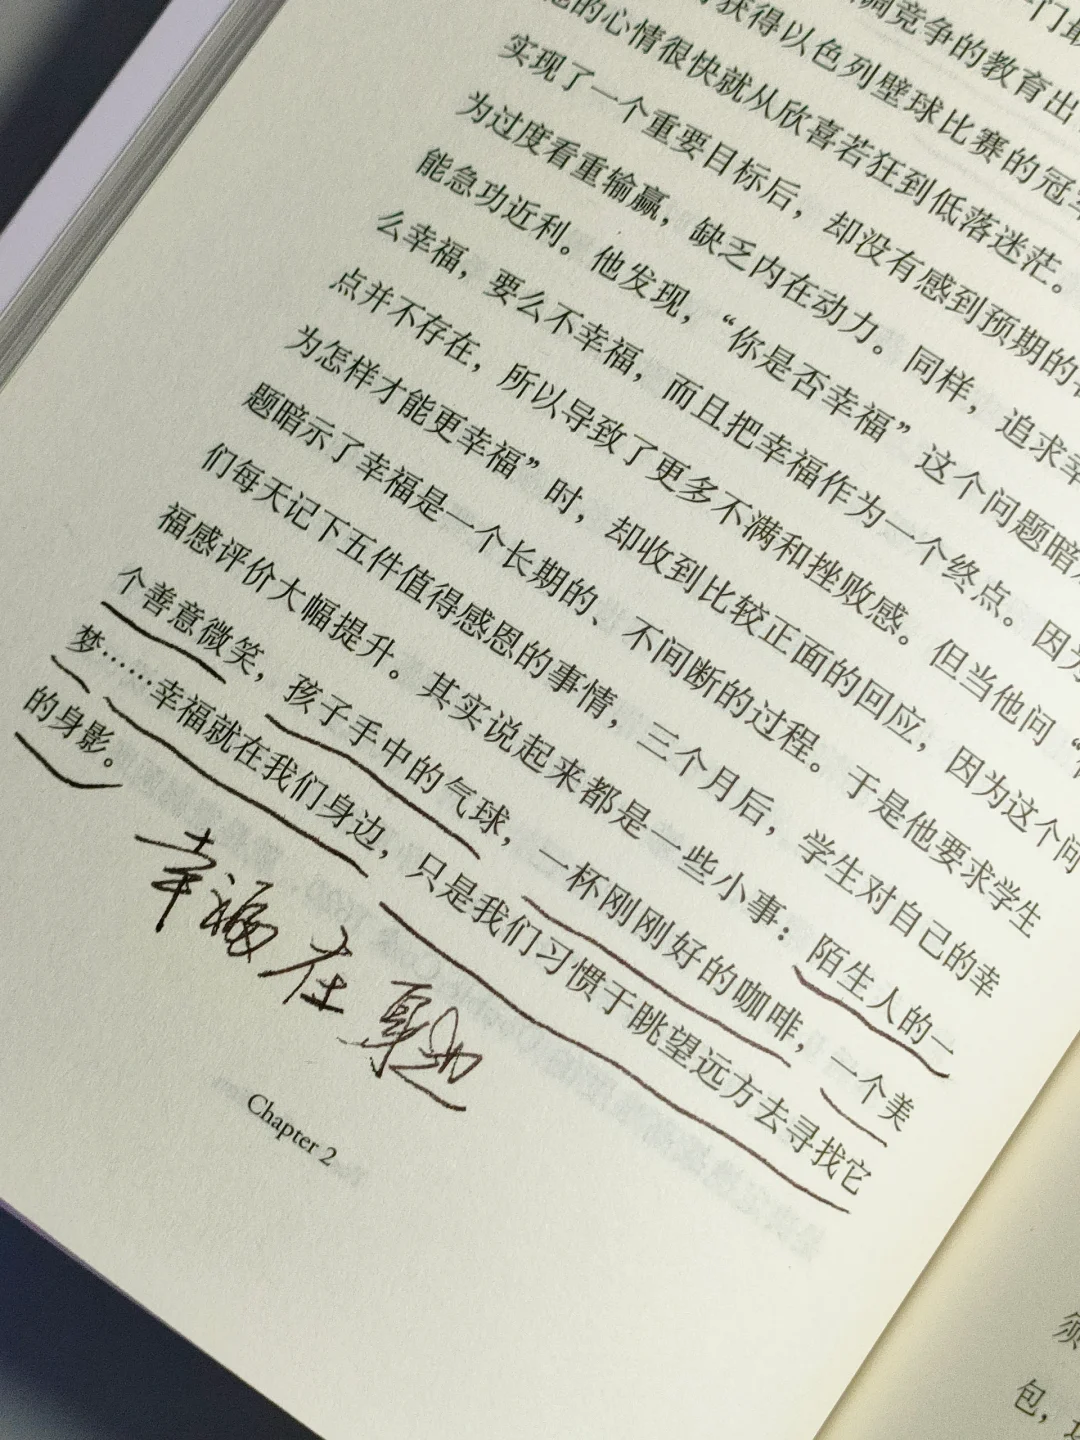 门最
调竞争的教育出
获得以色列壁球比赛的冠军
的心情很快就从欣喜若狂到低落迷茫。
实现了一个重要目标后，却没有感到预期的
为过度看重输赢，缺乏内在动力。同样，追求幸
能急功近利。他发现，“你是否幸福”这个问题暗
么幸福，要么不幸福，而且把幸福作为一个终点。因为
点并不存在，所以导致了更多不满和挫败感。但当他问“
为怎样才能更幸福”时，却收到比较正面的回应，因为这个问
题暗示了幸福是一个长期的、不间断的过程。于是他要求学生
们每天记下五件值得感恩的事情，三个月后，学生对自己的幸
福感评价大幅提升。其实说起来都是一些小事：陌生人的一
个善意微笑，孩子手中的气球，一杯刚刚好的咖啡，一个美
梦……幸福就在我们身边，只是我们习惯于眺望远方去寻找它
的身影。
幸福在身边
Chapter 2
须
包，